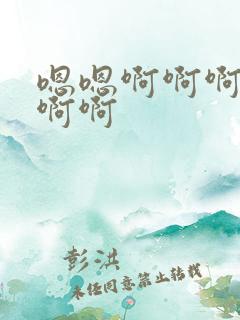 嗯嗯啊啊啊
啊啊
彭洪
未经同意禁止转载